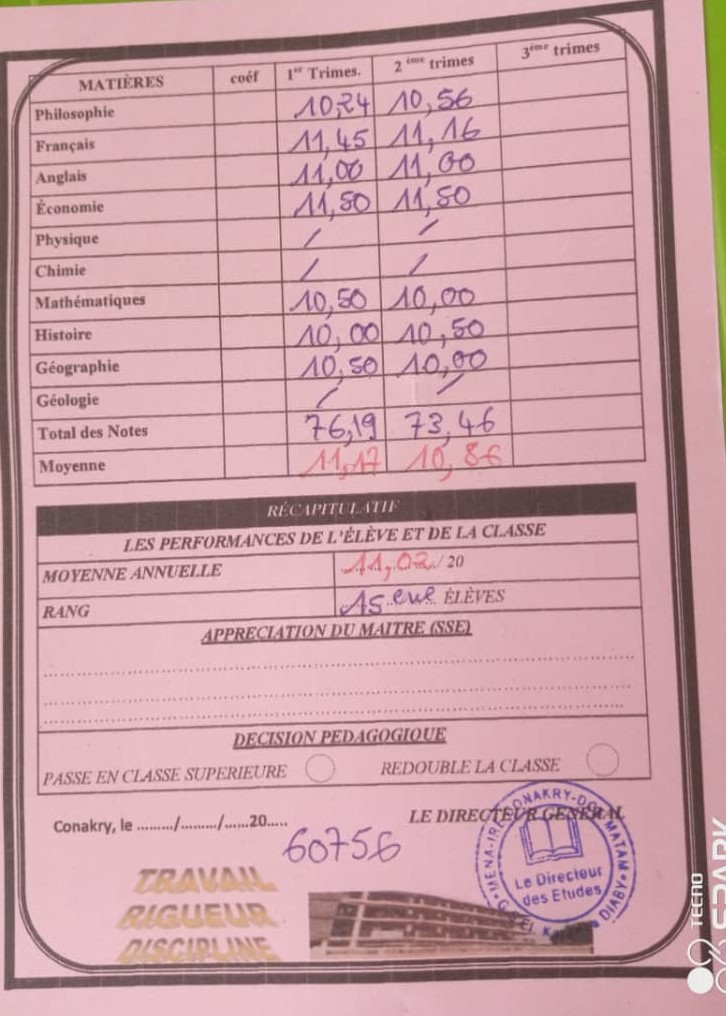 MATIÈRES coéf 1er Trimes. 2 ème trimes 3ème trimes
Philosophie 10,24 10,56
Français 11,45 11,16
Anglais 11,00 11,00
Économie 11,50 11,50
Physique / /
Chimie / /
Mathématiques 10,50 10,00
Histoire 10,00 10,50
Géographie 10,50 10,00
Géologie / /
Total des Notes 76,19 73,46
Moyenne 11,17 10,86
RÉCAPITULATIF
LES PERFORMANCES DE L'ÉLÈVE ET DE LA CLASSE
MOYENNE ANNUELLE 11,02./20
RANG 15 eme ÉLÈVES
APPRECIATION DU MAITRE (SSE)
DECISION PEDAGOGIQUE
PASSE EN CLASSE SUPERIEURE REDOUBLE LA CLASSE
Conakry, le ........./........./......20.....
LE DIRECTEUR GENERAL
60756
MENA-IRE CONAKRY-DCE MATAM
Le Directeur
des Etudes
DIABY
TRAVAIL
RIGUEUR
DISCIPLINE
TECNO
SPARK